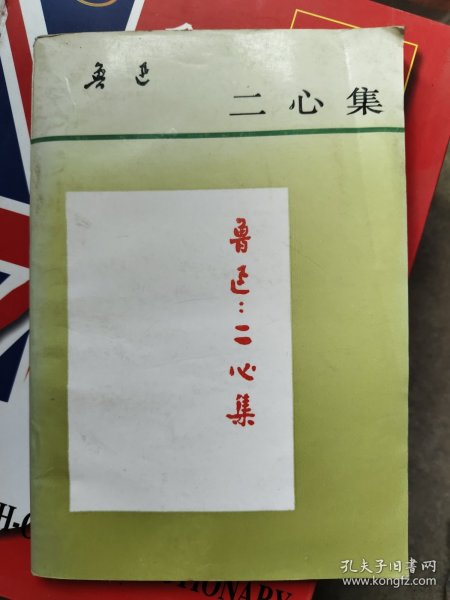 鲁迅
二心集
鲁迅：二心集
TIONARY
孔夫子旧书网
www.kongfz.com